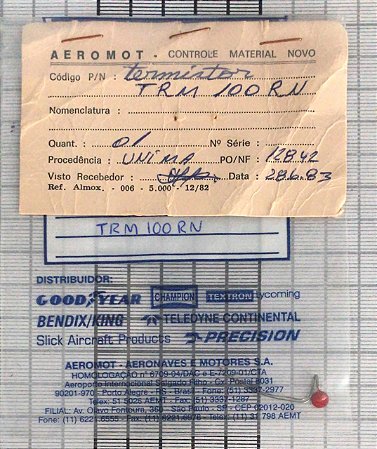 AEROMOT - CONTROLE MATERIAL NOVO
Código P/N : termistor
TRM 100RN
Nomenclatura :
Quant. : 01 Nº Série :
Procedência : UNIMA PO/NF : 12842
Visto Recebedor : Data : 28.6.83
Ref. Almox. - 006 - 5.000 - 12/82
TRM 100RN
DISTRIBUIDOR:
GOODYEAR CHAMPION TEXTRON Lycoming
BENDIX/KING TELEDYNE CONTINENTAL
Slick Aircraft Products PRECISION
AEROMOT - AERONAVES E MOTORES S.A.
HOMOLOGAÇÃO nº 6709-04/DAC e E-7209-01/CTA
Aeroporto Internacional Salgado Filho - Cx. Postal 8031
90201-970 - Porto Alegre - RS - Brasil - Fone:
Telex: 51 AEMT - Fax:
FILIAL: Av. Olavo Fontoura, - São Paulo - SP - CEP 02012-020
Fone: (11) - Fax (11) - Telex: (11) 31 798 AEMT